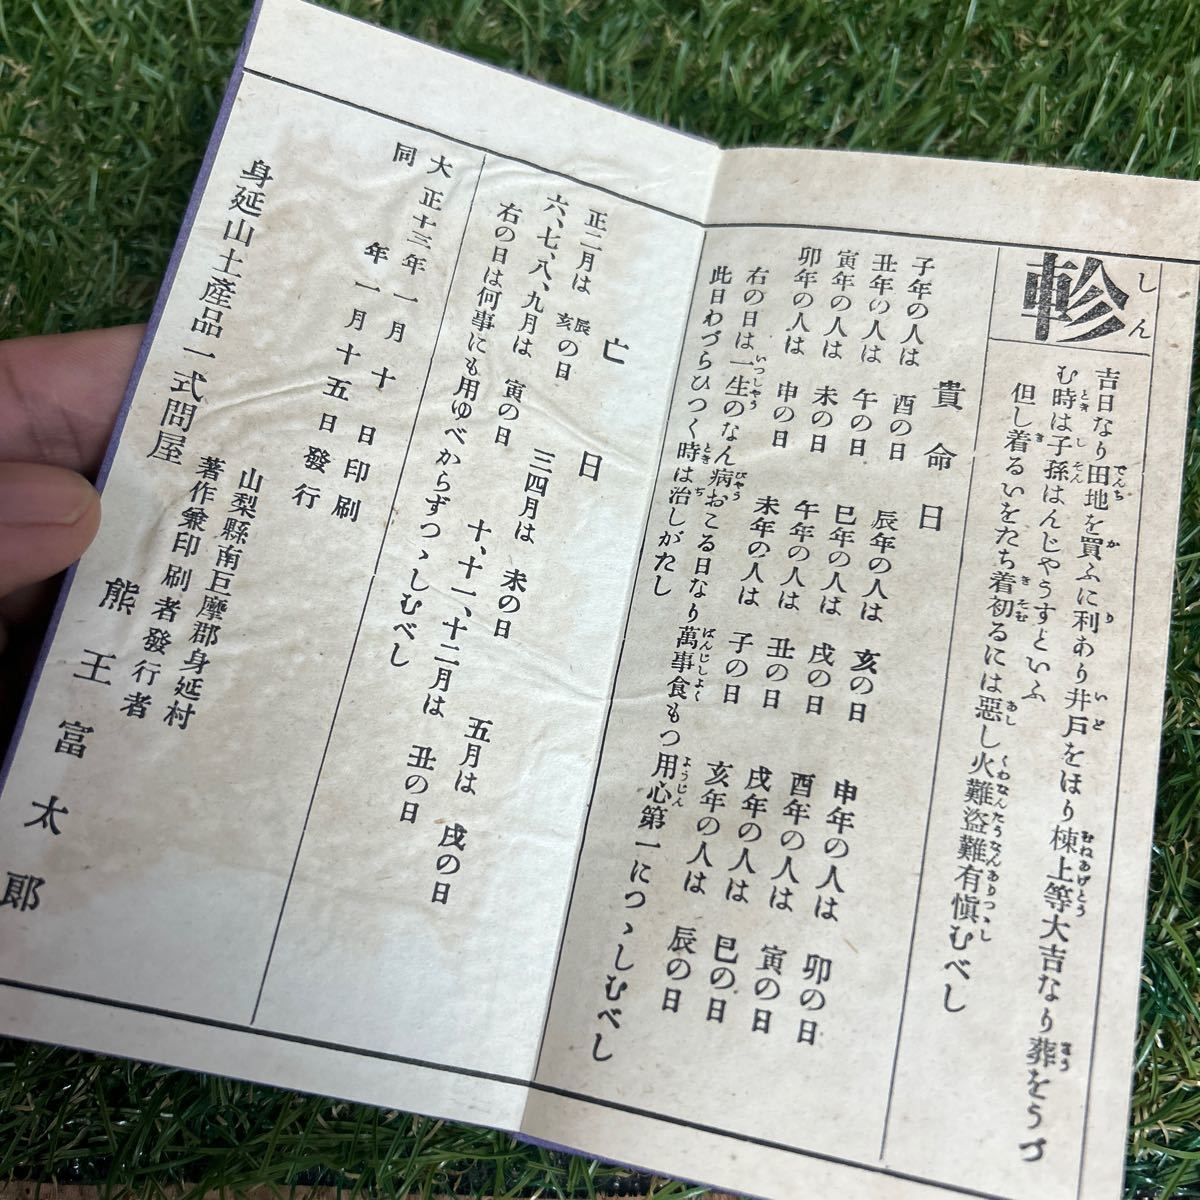 軫
しん
吉日なり田地を買ふに利あり井戸をほり棟上等大吉なり葬をうづ
む時は子孫はんじやうすといふ
但し着るいをたち着初るには惡し火難盜難有愼むべし
貴命日
子年の人は 酉の日 辰年の人は 亥の日 申年の人は 卯の日
丑年の人は 午の日 巳年の人は 戌の日 酉年の人は 寅の日
寅年の人は 未の日 午年の人は 丑の日 戌年の人は 巳の日
卯年の人は 申の日 未年の人は 子の日 亥年の人は 辰の日
右の日は一生のなん病おこる日なり萬事食もつ用心第一につゝしむべし
此日わづらひつく時は治しがたし
亡日
正二月は 辰亥の日 三四月は 未の日 五月は 戌の日
六、七、八、九月は 寅の日 十、十一、十二月は 丑の日
右の日は何事にも用ゆべからずつゝしむべし
大正十三年一月十日印刷
同年一月十五日發行
山梨縣南巨摩郡身延村
著作兼印刷者發行者
熊王富太郎
身延山土產品一式問屋